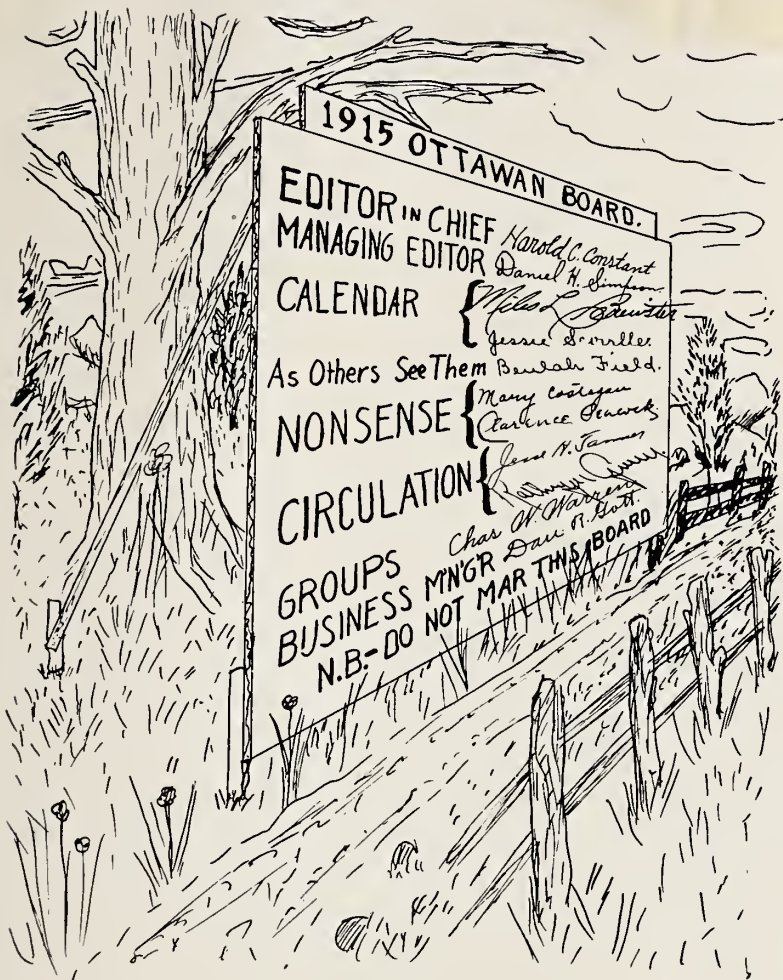 1915 OTTAWAN BOARD.
EDITOR IN CHIEF Harold C. Constant
MANAGING EDITOR Daniel H. Simpson
CALENDAR { Miles L. Brewster
Jessie
As Others See Them Beulah Field.
NONSENSE { Mary Costigan
Clarence
CIRCULATION { Jesse H.
GROUPS Chas W. Warren
BUSINESS M'N'G'R Dave R. Gott.
N.B.- DO NOT MAR THIS BOARD